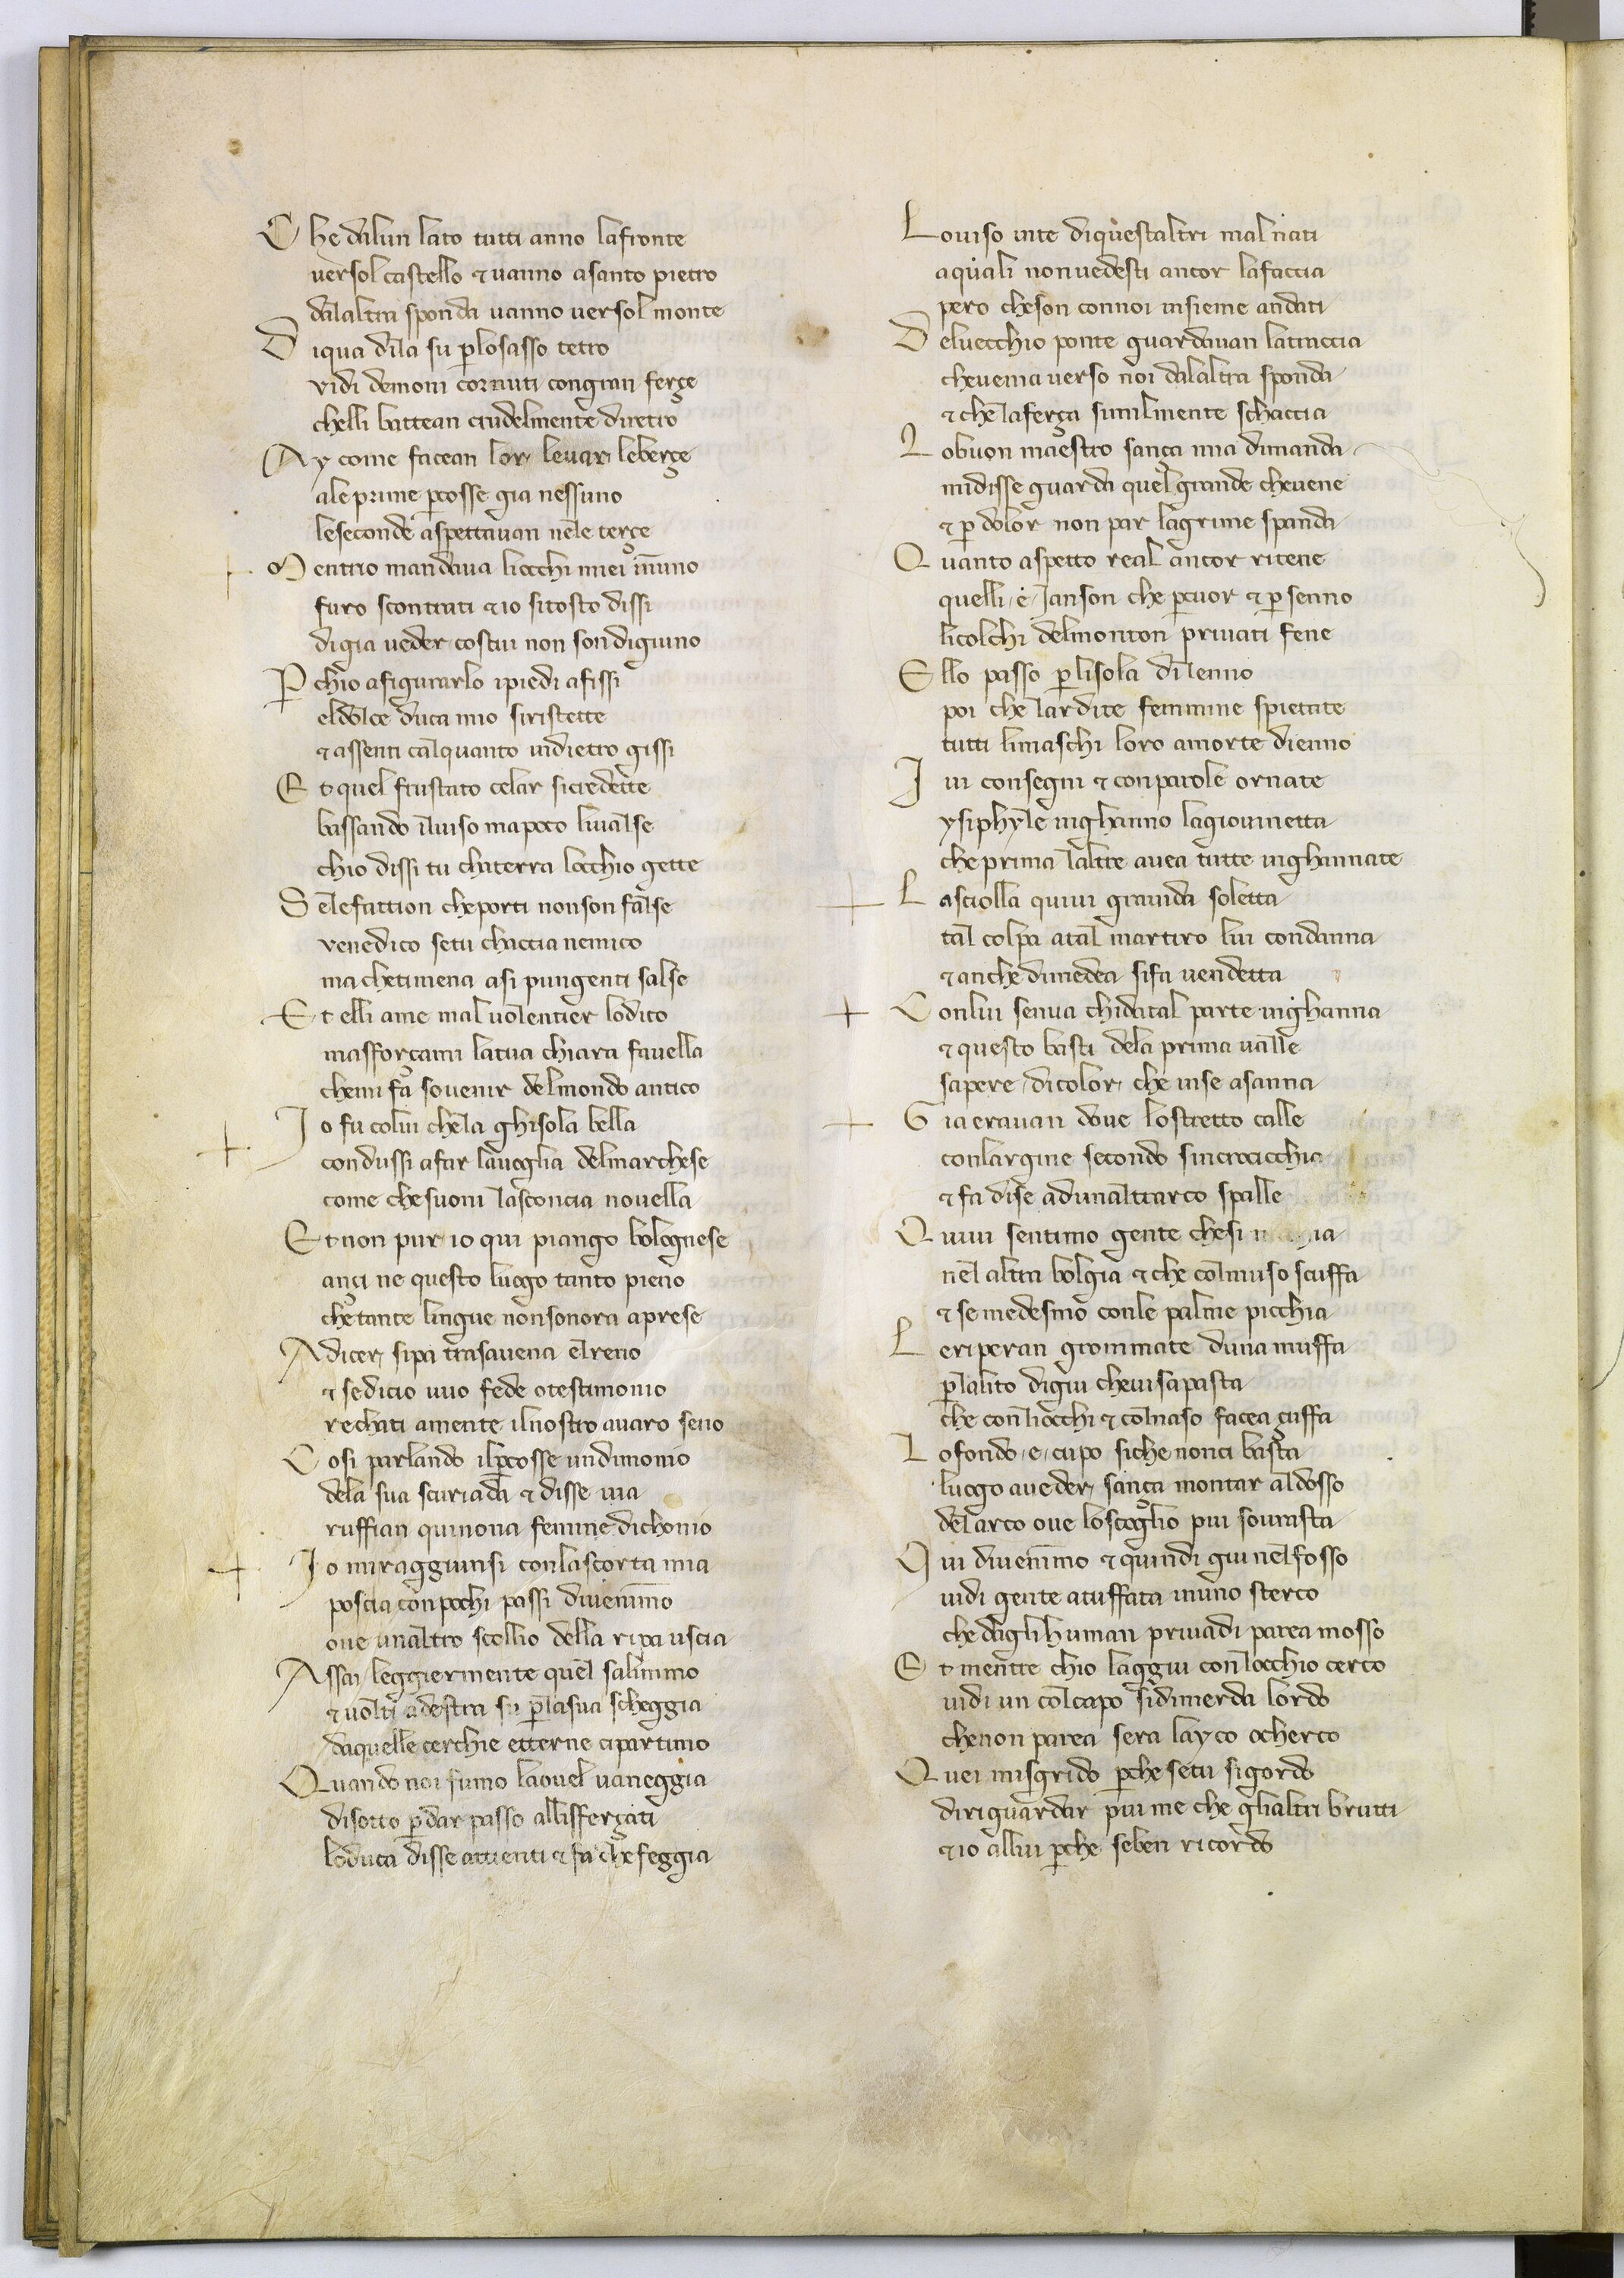 C he dalun lato tutti anno lafronte
versol castello & vanno asanto pietro
dalaltra sponda vanno versol monte
D iqua dila su p̄losasso tetro
vidi demoni cornuti congran ferçe
chelli battean crudelmente diretro
A y come facean lor levar leberçe
aleprime p̄cosse gia nessuno
leseconde aspettavan nele terçe
M entrio mandava liocchi miei inuno
furo scontrati & io sitosto dissi
digia veder costui non sondigiuno
P̄ chio afigurarlo ipiedi afissi
eldolce duca mio siristette
& assenti calquanto indietro gissi
E t quel frustato celar sicredette
bassando ilviso mapoco livalse
chio dissi tu chaterra locchio gette
S elefattion cheporti nonson false
venedico setu chaccia nemico
ma chetimena asi pungenti salse
E t elli ame mal volentier lodico
masforçami latua chiara favella
chemi fa sovenir delmondo antico
I o fu colui chela ghisola bella
condussi afar lavoglia delmarchese
come chesuoni lasconcia novella
E t non pur io qui piango bolognese
ançi ne questo luogo tanto pieno
che tante lingue nonsonora aprese
A dicer sipa trasavena elreno
& sedicio vuo fede otestimonio
rechati amente ilnostro avaro seno
C osi parlando ilp̄cosse undimonio
dela sua scuriada & disse via
ruffian quinona femine dichonio
I o miraggiunsi conlascorta mia
poscia conpochi passi divenim̄mo
ove unaltro scollio della ripa uscia
A ssai leggiermente quel salim̄mo
& volti adestra su p̄lasua scheggia
daquelle cerchie etterne cipartimo
Q uando noi fumo laovel vaneggia
disotto p̄dar passo allisferçati
loduca disse attienti & fa che feggia
L oviso inte diquestaltri mal nati
aquali nonvedesti ancor lafaccia
pero cheson connoi insieme andati
D elvecchio ponte guardavan latraccia
chevenia verso noi dalaltra sponda
& che laferça similmente schaccia
L obuon maestro sança mia dimanda
midisse guarda quel grande chevene
& p̄ dolor non par lagrime spanda
Q uanto aspetto real ancor ritene
quelli e Ianson che p̄cuor & p̄ senno
licolchi delmonton privati fene
E llo passo p̄lisola dilenno
poi che lardite femmine spietate
tutti limaschi loro amorte dienno
I vi consegni & conparole ornate
ysiphyle inghanno lagiovinetta
cheprima laltre avea tutte inghannate
L asciolla quivi gravida soletta
tal colpa atal martiro lui condanna
& anche dimedea sifa vendetta
C onlui senva chidatal parte inghanna
& questo basti dela prima valle
sapere dicolor che inse asanna
G ia eravan dove lostretto calle
conlargine secondo sincrocicchia
& fa dise adunaltrarco spalle
Q uivi sentimo gente chesi
nel altra bolgia & che colmuso scuffa
& semedesmo conle palme picchia
L eriperan grommate duna muffa
p̄lalito digiu chevisapasta
che conliocchi & colnaso facea çuffa
L ofondo e cupo siche nonci basta
luogo aveder sança montar aldosso
delarco ove loscoglio piu sovrasta
Q ui divenim̄mo & quindi giu nelfosso
vidi gente atuffata inuno sterco
che daglihuman privadi parea mosso
E t mentre chio laggiu conlocchio cerco
vidi un colcapo sidimerda lordo
chenon parea sera layco ocherco
Q uei misgrido p̄che setu sigordo
diriguardar piu me che glialtri brutti
& io allui p̄che seben ricordo